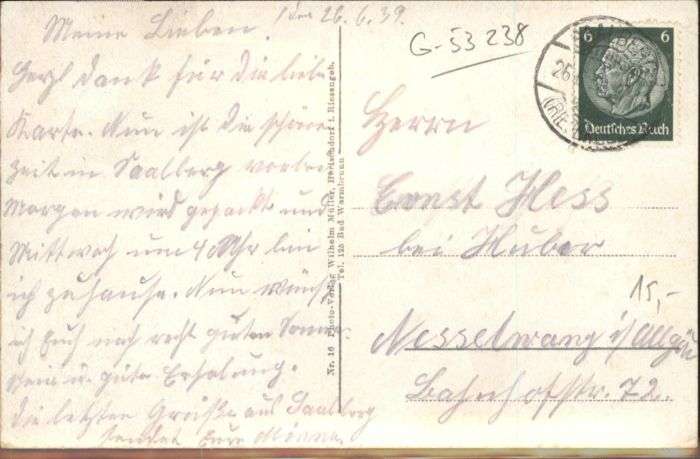 den 26.6.39.
Meine Lieben.
Herzl dank für die liebe
Karte. Nun ist die schöne
zeit in Saalberg vorbei
Morgen wird gepackt und
Mittwoch um 4 Uhr bin
ich zuhause. Nun wünsch
ich Euch noch recht guten Sonnen
schein u. gute Erholung.
Die letzten Grüße aus Saalberg
sendet Eure
Nr. 16 Photo-Verlag Wilhelm Müller, Herischdorf i. Riesengeb.
Tel. 125 Bad Warmbrunn
G-53 238
6 6
Deutsches Reich
26
Herrn
Ernst Hess
bei Huber
15,-
Nesselwang i/Allgäu
Bahnhofstr. 72.